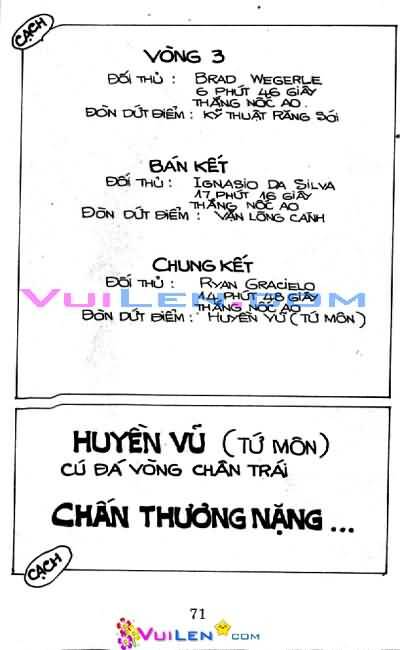 CẠCH
VÒNG 3
ĐỐI THỦ : BRAD WEGERLE
6 PHÚT 46 GIÂY
THẮNG NỐC AO.
ĐÒN DỨT ĐIỂM : KỸ THUẬT RĂNG SÓI
BÁN KẾT
ĐỐI THỦ : IGNASIO DA SILVA
17 PHÚT 16 GIÂY
THẮNG NỐC AO
ĐÒN DỨT ĐIỂM : VẠN LÔNG CÁNH
CHUNG KẾT
ĐỐI THỦ : RYAN GRACIELO
14 PHÚT 48 GIÂY
THẮNG NỐC AO
ĐÒN DỨT ĐIỂM : HUYỀN VŨ (TỨ MÔN)
VUILEN.COM
HUYỀN VŨ (TỨ MÔN)
CÚ ĐÁ VÒNG CHÂN TRÁI
CHẤN THƯƠNG NẶNG ...
CẠCH
71
VUILEN.COM